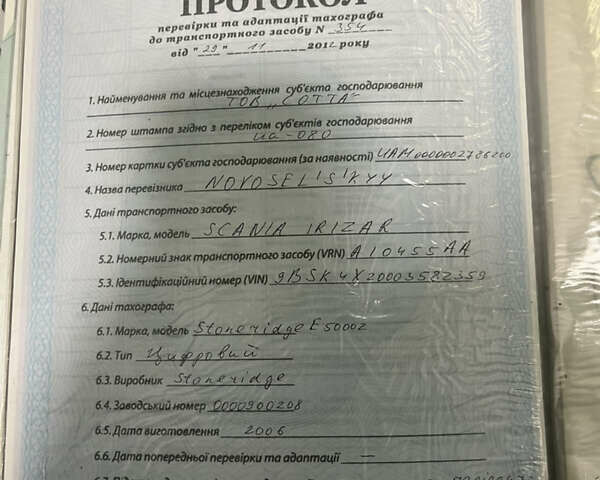 ПРОТОКОЛ
перевірки та адаптації тахографа
до транспортного засобу N 354
від "29" 11 2012 року
1. Найменування та місцезнаходження суб'єкта господарювання
ТОВ "СОТТА"
2. Номер штампа згідно з переліком суб'єктів господарювання
ua-080
3. Номер картки суб'єкта господарювання (за наявності) UAM0000002786200
4. Назва перевізника NOVOSEL'S'KYY
5. Дані транспортного засобу:
5.1. Марка, модель SCANIA IRIZAR
5.2. Номерний знак транспортного засобу (VRN) AI0455AA
5.3. Ідентифікаційний номер (VIN) 9BSK4X20003582359
6. Дані тахографа:
6.1. Марка, модель Stoneridge E5000Z
6.2. Тип Цифровий
6.3. Виробник Stoneridge
6.4. Заводський номер 0000900208
6.5. Дата виготовлення 2006
6.6. Дата попередньої перевірки та адаптації —